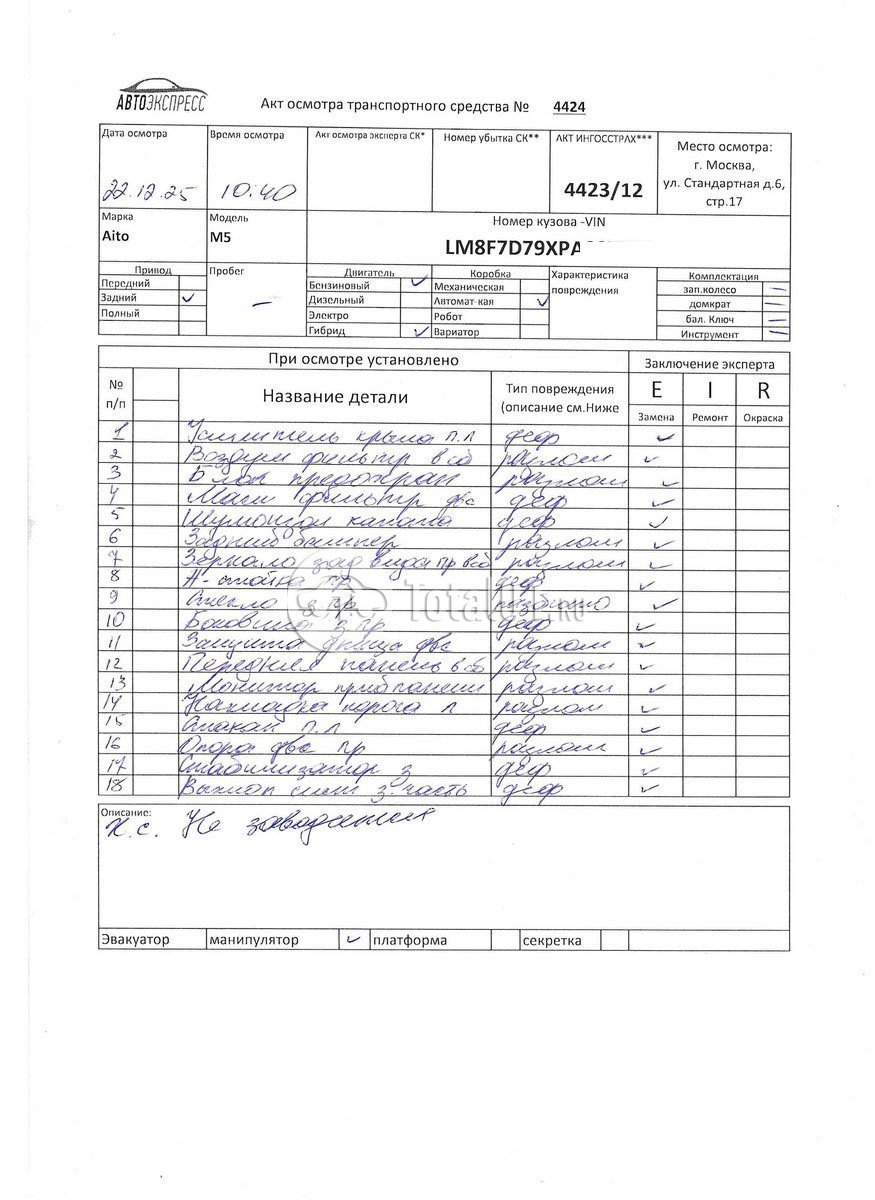 АВТОЭКСПРЕСС
Акт осмотра транспортного средства № 4424
Дата осмотра Время осмотра Акт осмотра эксперта СК* Номер убытка СК** АКТ ИНГОССТРАХ*** Место осмотра:
г. Москва,
22.12.25 10:40 4423/12 ул. Стандартная д.6,
стр.17
Марка Модель Номер кузова -VIN
Aito M5 LM8F7D79XPA
Привод Пробег Двигатель Коробка Характеристика Комплектация
Передний Бензиновый ✓ Механическая повреждения зап.колесо —
Задний ✓ — Дизельный Автомат-кая ✓ домкрат —
Полный Электро Робот бал. Ключ —
Гибрид ✓ Вариатор Инструмент —
При осмотре установлено Заключение эксперта
№ п/п Название детали Тип повреждения (описание см.Ниже E I R
Замена Ремонт Окраска
1 Усилитель крыла п.л деф ✓
2 Воздушн фильтр в сб разлом ✓
3 Блок предохран разлом ✓
4 Масл фильтр двс деф ✓
5 Шумоизол капота деф ✓
6 Задний бампер разлом ✓
7 Зеркало зад вида пр в сб разлом ✓
8 А-стойка пр деф ✓
9 Стекло з пр разбито ✓
10 Боковина з пр деф ✓
11 Защита днища двс разлом ✓
12 Передняя панель в сб разлом ✓
13 Монитор приб панели разлом ✓
14 Накладка порога л разлом ✓
15 Стакан п.л деф ✓
16 Опора двс пр разлом ✓
17 Стабилизатор з деф ✓
18 Выхлоп сист з. часть деф ✓
TotalOut.RU
Описание:
Н.с. Не заводится
Эвакуатор манипулятор ✓ платформа секретка